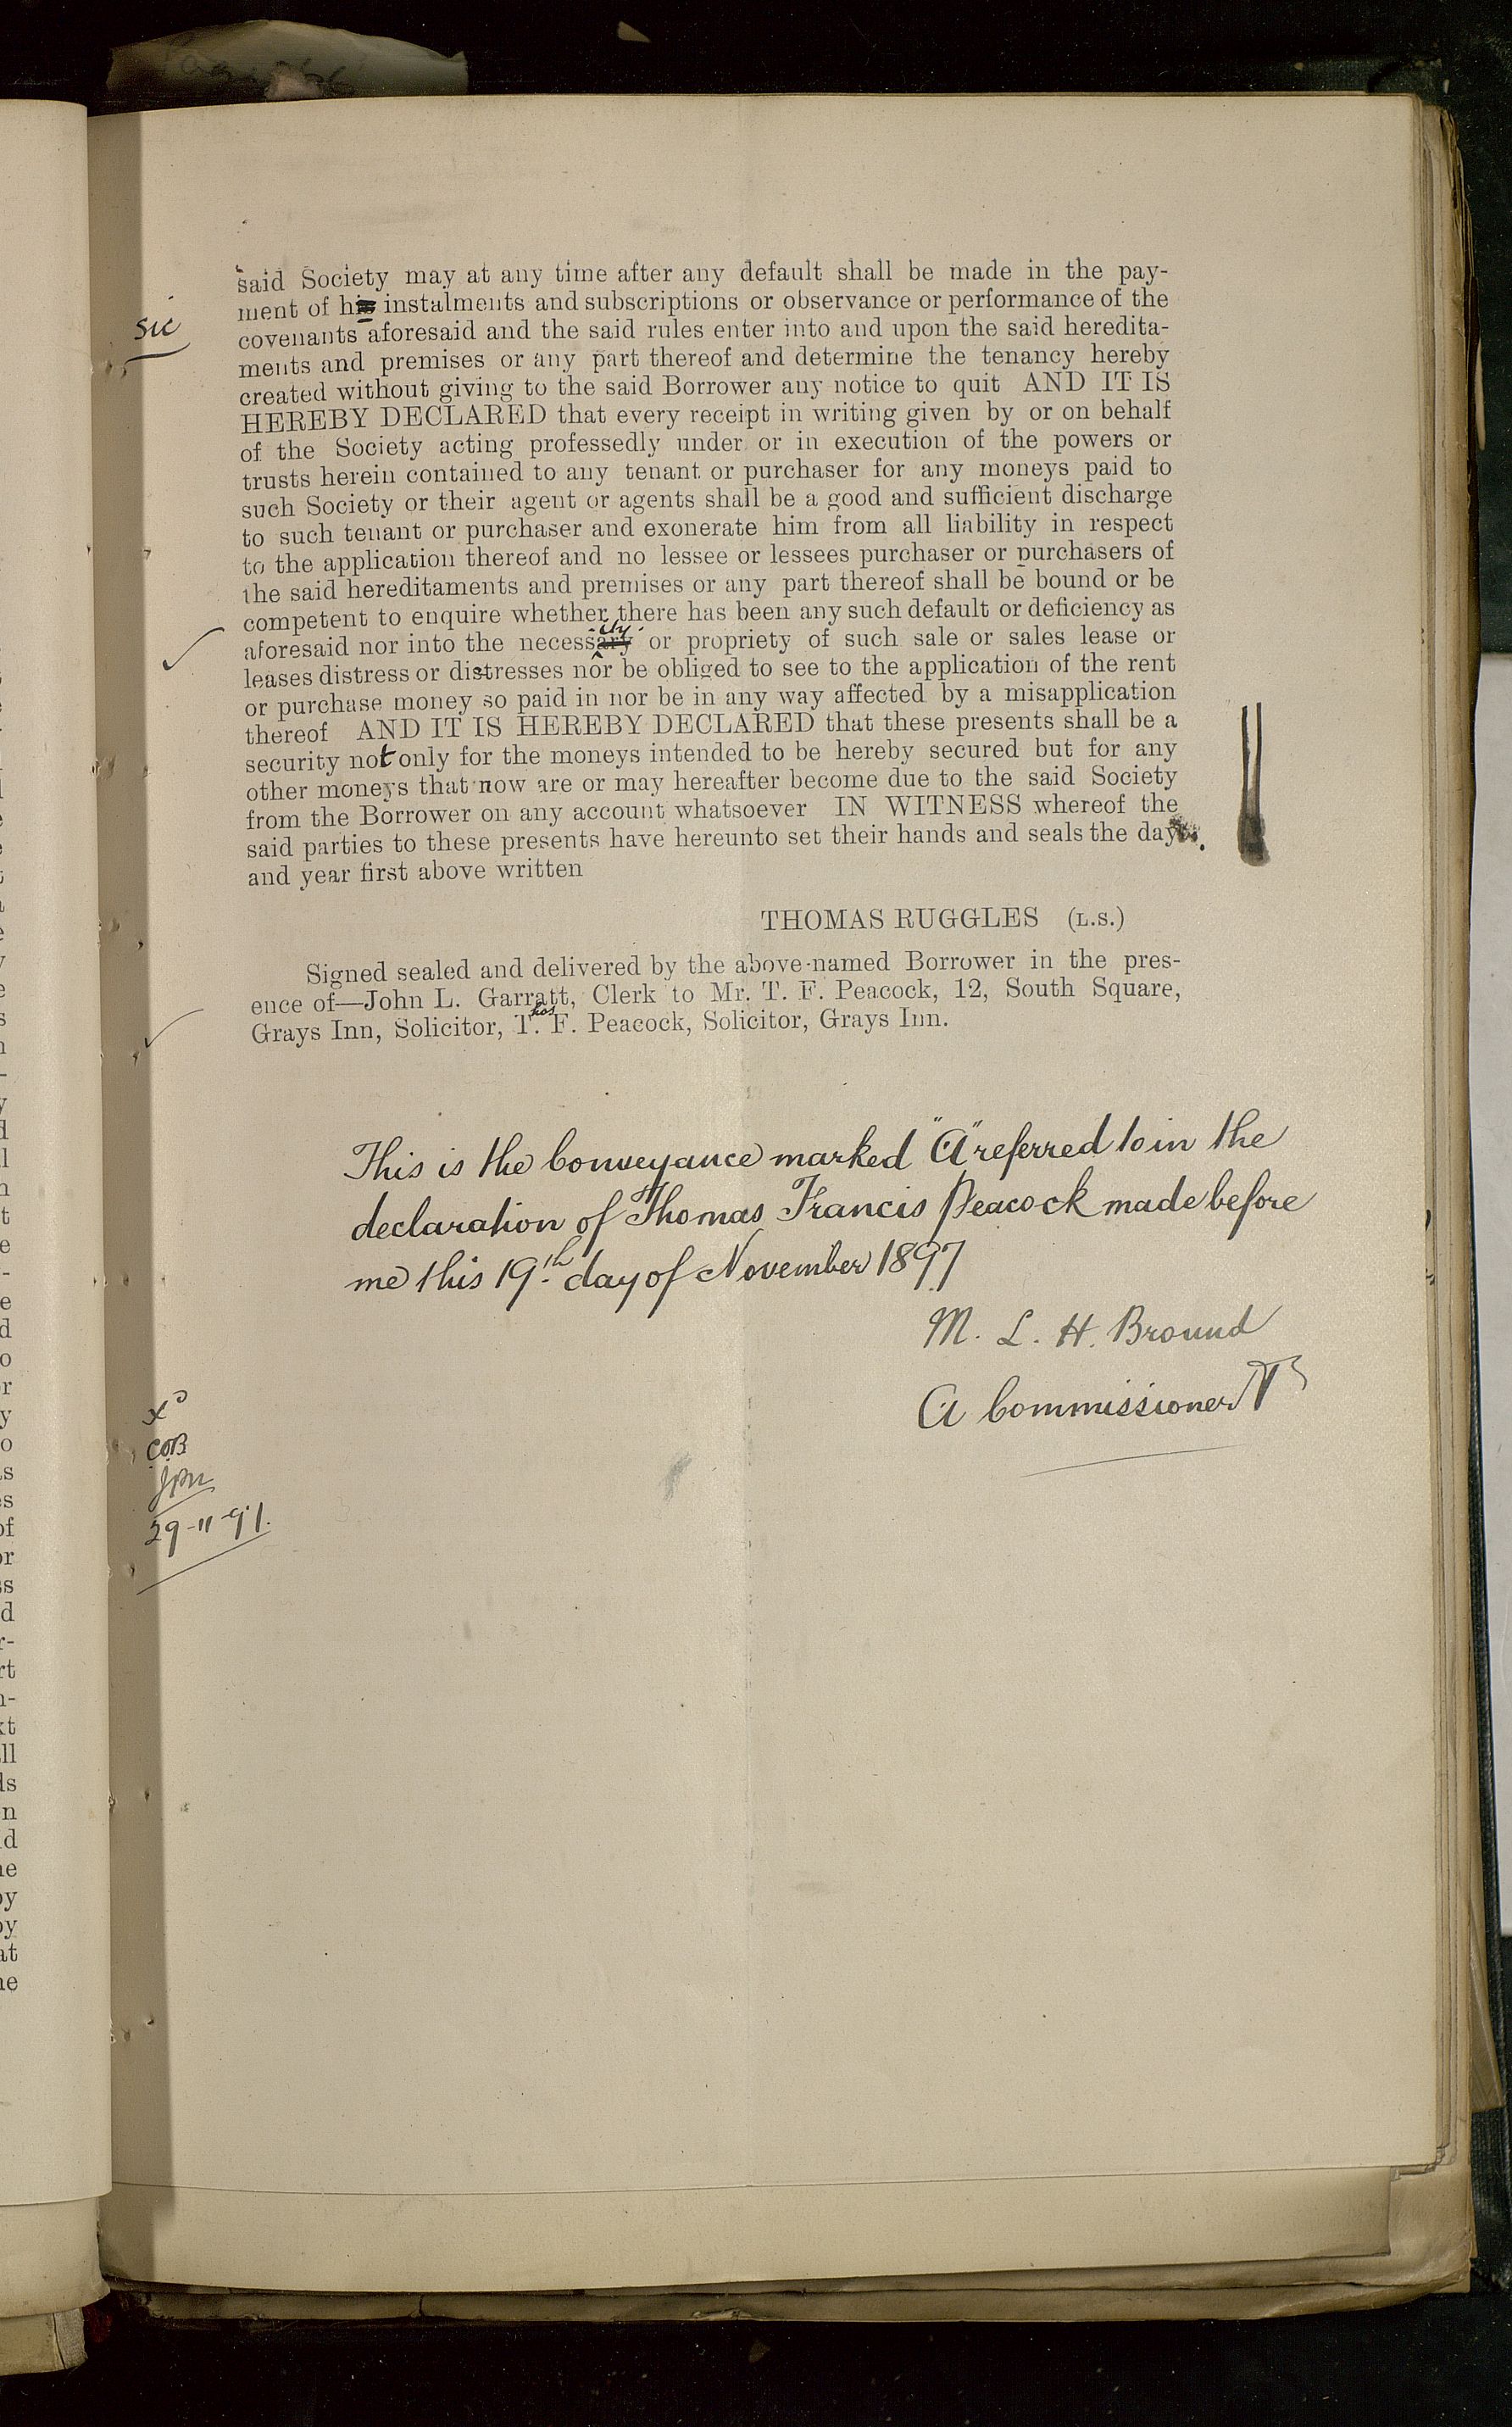 said Society may at any time after any default shall be made in the pay-
ment of his instalments and subscriptions or observance or performance of the
sic
covenants aforesaid and the said rules enter into and upon the said heredita-
ments and premises or any part thereof and determine the tenancy hereby
created without giving to the said Borrower any notice to quit AND IT IS
HEREBY DECLARED that every receipt in writing given by or on behalf
of the Society acting professedly under or in execution of the powers or
trusts herein contained to any tenant or purchaser for any moneys paid to
such Society or their agent or agents shall be a good and sufficient discharge
to such tenant or purchaser and exonerate him from all liability in respect
to the application thereof and no lessee or lessees purchaser or purchasers of
the said hereditaments and premises or any part thereof shall be bound or be
competent to enquire whether there has been any such default or deficiency as
ity
aforesaid nor into the necessary or propriety of such sale or sales lease or
leases distress or distresses nor be obliged to see to the application of the rent
or purchase money so paid in nor be in any way affected by a misapplication
thereof AND IT IS HEREBY DECLARED that these presents shall be a
security not only for the moneys intended to be hereby secured but for any
other moneys that now are or may hereafter become due to the said Society
from the Borrower on any account whatsoever IN WITNESS whereof the
said parties to these presents have hereunto set their hands and seals the day
and year first above written
THOMAS RUGGLES (L.S.)
Signed sealed and delivered by the above-named Borrower in the pres-
ence of—John L. Garratt, Clerk to Mr. T. F. Peacock, 12, South Square,
hos
Grays Inn, Solicitor, T. F. Peacock, Solicitor, Grays Inn.
This is the Conveyance marked "A" referred to in the
declaration of Thomas Francis Peacock made before
me this 19th day of November 1897
M. L. H. Bround
A Commissioner &c
COB
29-11-97.